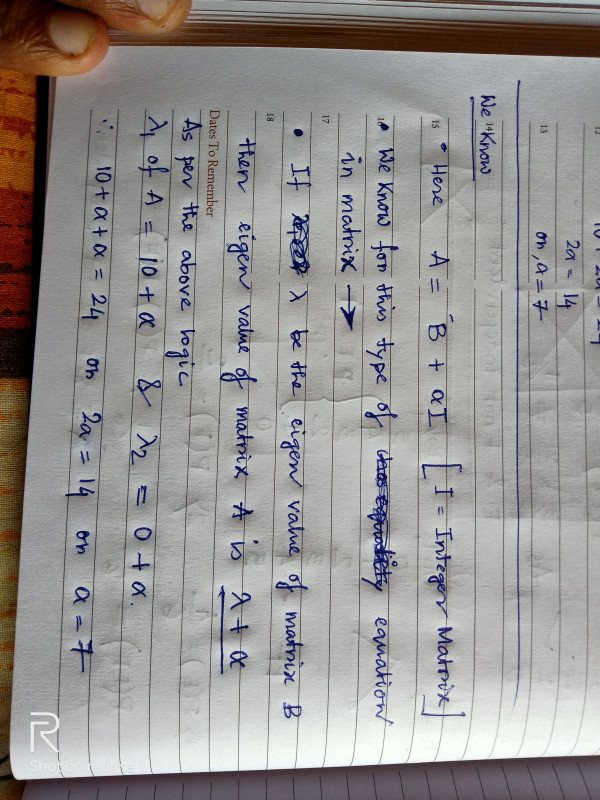 12
10 + 2a = 24
2a = 14
13
on, a = 7
14
We Know
15
• Here A = B + αI [I = Integer Matrix]
• We Know for this type of equation
in matrix →
17
• If λ be the eigen value of matrix B
18
then eigen value of matrix A is λ + α
Dates To Remember
As per the above logic
λ1 of A = 10 + α & λ2 = 0 + α.
∴ 10 + α + α = 24 on 2α = 14 on α = 7
R
Shot on realme